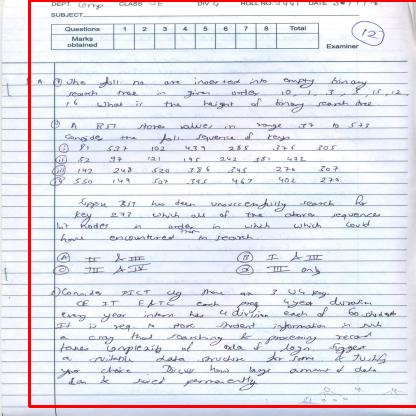 DEPT. Comp CLASS SE DIV 4 ROLL NO. DATE
SUBJECT
Questions 1 2 3 4 5 6 7 8 Total
Marks obtained
12
Examiner
A. The foll no are inserted into empty binary
search tree in given order 10, 1, 3, 15, 12
16 What is the height of binary search tree
A BST stores values in range 37 to 573
Consider the foll sequence of keys
81 537 102 439 285 376 305
52 97 121 195 242 381 472
142 248 520 386 345 270 307
550 149 507 395 463 402 270
BST has been unsuccessfully search for
key 273 which all of the above sequences
nodes in order in which which could
have encountered in search.
II & III
I & III
III only
Consider PICT clg there are 3 UG
CE IT E&TC each 4 year duration
every year intern has 4 division each of 60
It is req to store student information in such
a way that searching & processing record
takes complexity of
a suitable data structure for same & justify
your choice Discuss how large amount of data
can be saved permanently